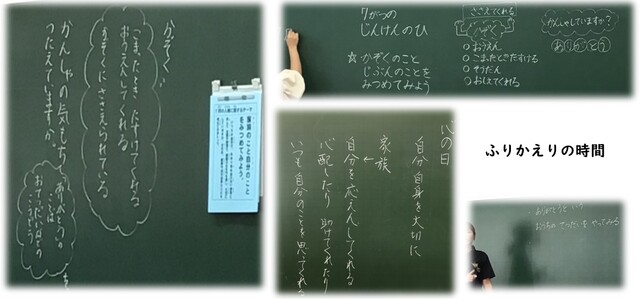 かぞく
こまったとき たすけてくれる
おうえんしてくれる
かぞくにささえられている
かんしゃの気もちを
つたえていますか。
ありがとうの
ことば
おてつだいなどの
こうどう
家族のこと自分のこと
をみつめてみよう。
7がつの
じんけんのひ
☆かぞくのこと
じぶんのことを
みつめてみよう
ささえてくれる
○おうえん
○こまったときたすける
○そうだん
○おしえてくれる
かんしゃしていますか?
ありがとう
心の日
自分自身を大切に
家族
自分を応えんしてくれる
心配したり 助けてくれたり
いつも自分のことを思ってくれる
ふりかえりの時間
ありがとうという
おうちの てつだいを やってみる